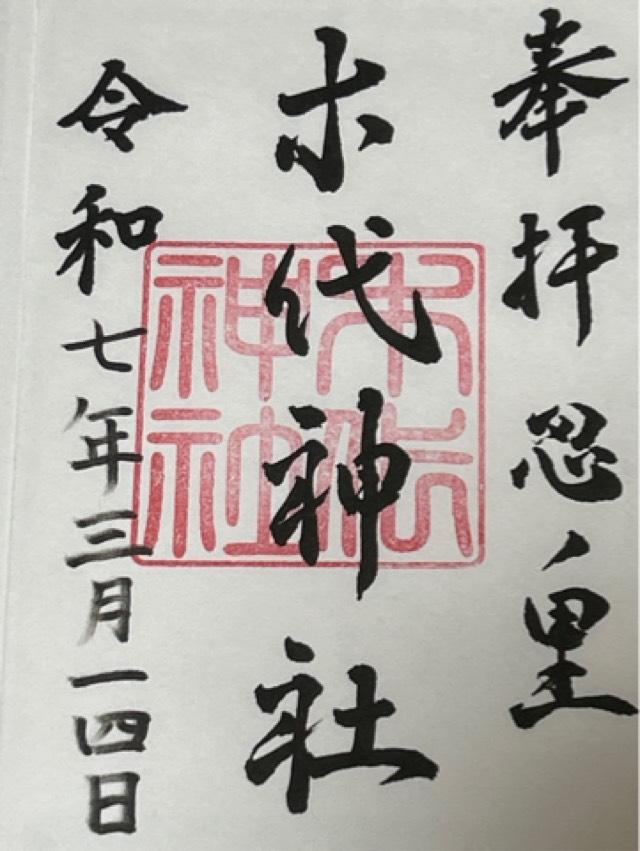 奉拝 忍ノ里
木代神社
令和七年三月一四日
木代
神社